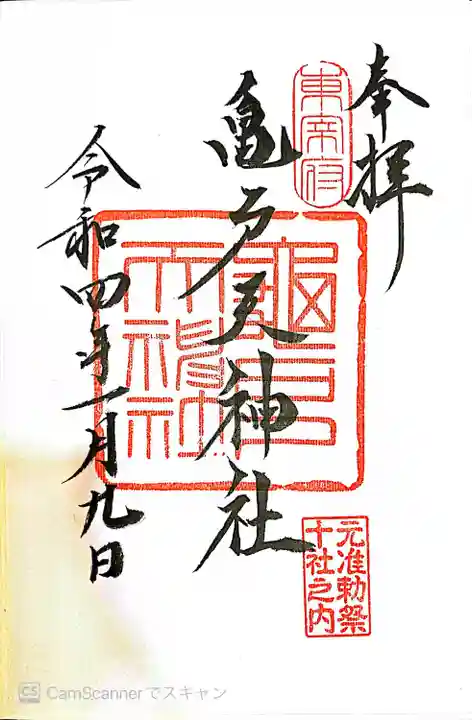 奉拝
東宰府
亀戸天神社
亀戸天神社
令和四年一月九日
元准勅祭
十社之内
CS CamScannerでスキャン